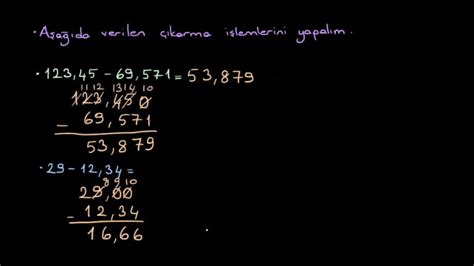 • Aşağıda verilen çıkarma işlemlerini yapalım.
• 123,45 - 69,571 = 53,879
11 12 13 14 10
123,450
- 69,571
53,879
• 29 - 12,34 =
8 9 10
29,00
- 12,34
16,66